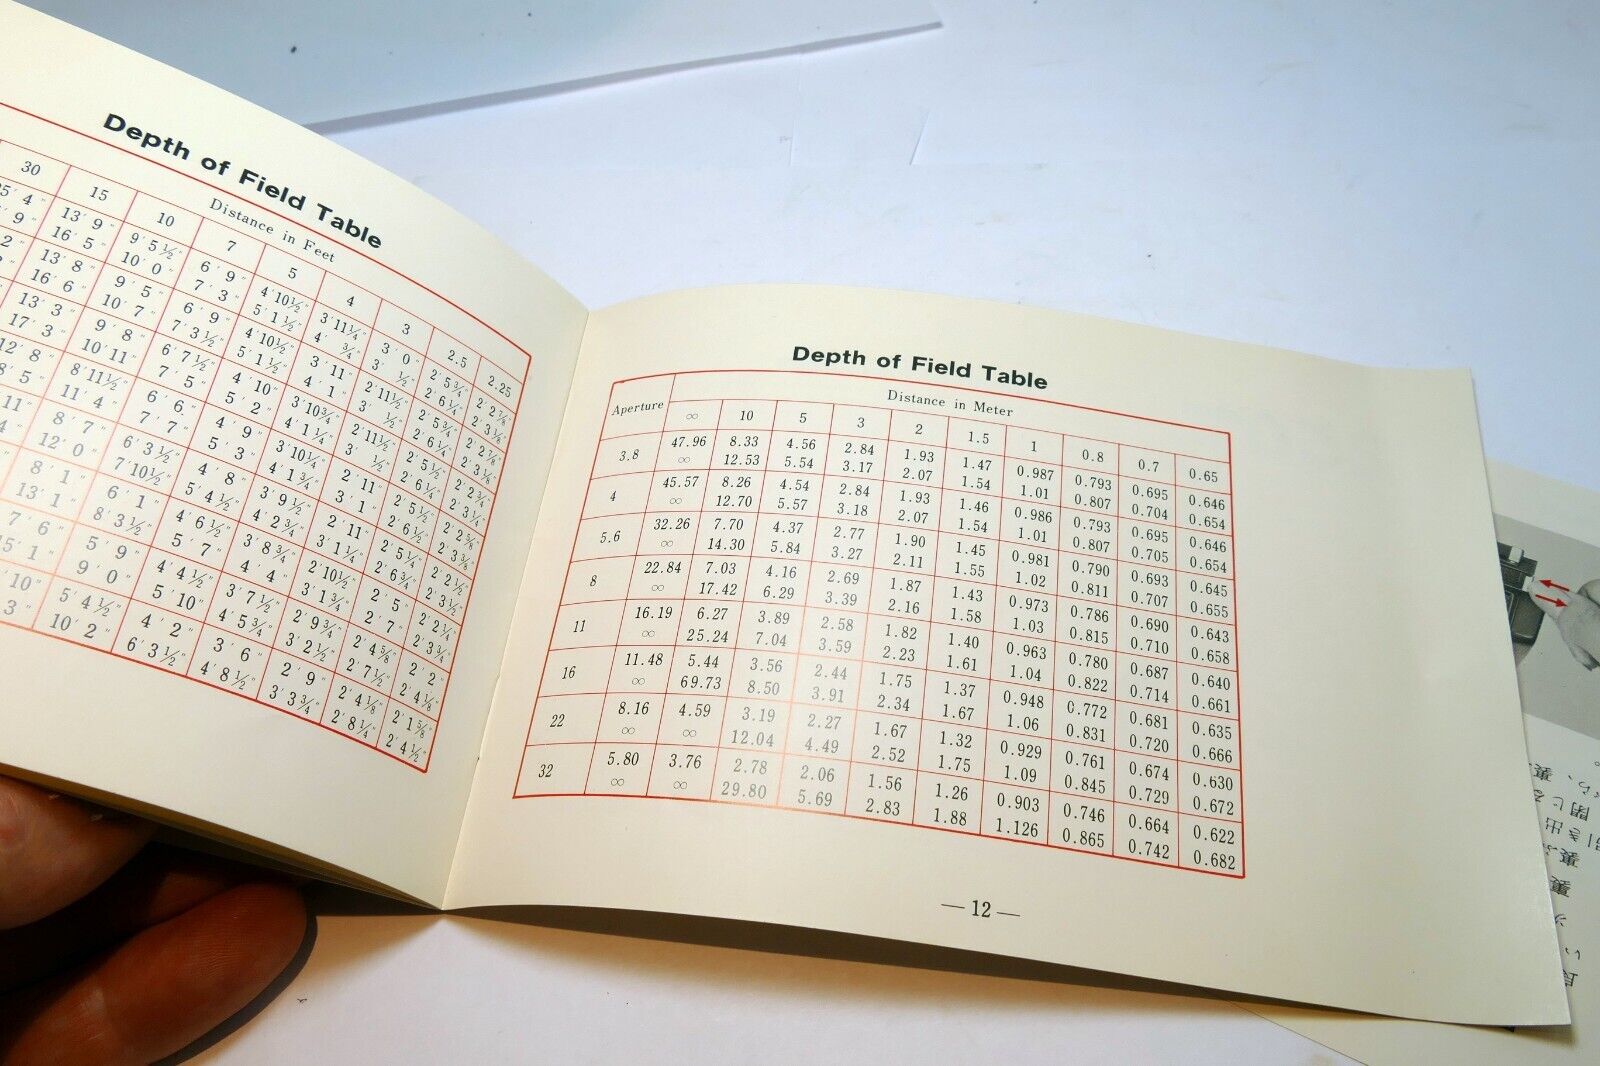 Depth of Field Table
Distance in Feet
30 15 10 7 5 4 3 2.5 2.25
5' 4" 13' 9" 9' 5½" 6' 9" 4'10½" 3'11¼" 3' 0" 2' 5¾" 2' 2⅞"
9" 16' 5" 10' 0" 7' 3" 5' 1½" 4' ¾" 3' ½" 2' 6¼" 2' 3⅛"
2" 13' 8" 9' 5" 6' 9" 4'10½" 3'11" 2'11½" 2' 5¾" 2' 2⅞"
16' 6" 10' 7" 7' 3½" 5' 1½" 4' 1" 3' ½" 2' 6¼" 2' 3⅛"
13' 3" 9' 8" 6' 7½" 4' 10" 3'10¾" 2'11½" 2' 5½" 2' 2¾"
17' 3" 10' 11" 7' 5" 5' 2" 4' 1¼" 3' ½" 2' 6¼" 2' 3¼"
12' 8" 8' 11½" 6' 6" 4' 9" 3'10¼" 2' 11" 2' 5½" 2' 2⅝"
8' 5" 11' 4" 7' 7" 5' 3" 4' 1¾" 3' 1" 2' 6½" 2' 3⅜"
11" 8' 7" 6' 3½" 4' 8" 3' 9½" 2' 11" 2' 5¼" 2' 2½"
4" 12' 0" 7' 10½" 5' 4½" 4' 2¾" 3' 1¼" 2' 6¾" 2' 3½"
8' 1" 6' 1" 4' 6½" 3' 8¾" 2' 10½" 2' 5" 2' 2¼"
13' 1" 8' 3½" 5' 7" 4' 4" 3' 1¾" 2' 7" 2' 3¾"
7' 6" 5' 9" 4' 4½" 3' 7½" 2' 9¾" 2' 4⅝" 2' 2"
15' 1" 9' 0" 5' 10" 4' 5¾" 3' 2½" 2' 7½" 2' 4⅛"
10" 5' 4½" 4' 2" 3' 6" 2' 9" 2' 4⅛" 2' 1⅝"
3" 10' 2" 6' 3½" 4' 8½" 3' 3¾" 2' 8¼" 2' 4½"
Depth of Field Table
Aperture Distance in Meter
∞ 10 5 3 2 1.5 1 0.8 0.7 0.65
3.8 47.96 8.33 4.56 2.84 1.93 1.47 0.987 0.793 0.695 0.646
∞ 12.53 5.54 3.17 2.07 1.54 1.01 0.807 0.704 0.654
4 45.57 8.26 4.54 2.84 1.93 1.46 0.986 0.793 0.695 0.646
∞ 12.70 5.57 3.18 2.07 1.54 1.01 0.807 0.705 0.654
5.6 32.26 7.70 4.37 2.77 1.90 1.45 0.981 0.790 0.693 0.645
∞ 14.30 5.84 3.27 2.11 1.55 1.02 0.811 0.707 0.655
8 22.84 7.03 4.16 2.69 1.87 1.43 0.973 0.786 0.690 0.643
∞ 17.42 6.29 3.39 2.16 1.58 1.03 0.815 0.710 0.658
11 16.19 6.27 3.89 2.58 1.82 1.40 0.963 0.780 0.687 0.640
∞ 25.24 7.04 3.59 2.23 1.61 1.04 0.822 0.714 0.661
16 11.48 5.44 3.56 2.44 1.75 1.37 0.948 0.772 0.681 0.635
∞ 69.73 8.50 3.91 2.34 1.67 1.06 0.831 0.720 0.666
22 8.16 4.59 3.19 2.27 1.67 1.32 0.929 0.761 0.674 0.630
∞ ∞ 12.04 4.49 2.52 1.75 1.09 0.845 0.729 0.672
32 5.80 3.76 2.78 2.06 1.56 1.26 0.903 0.746 0.664 0.622
∞ ∞ 29.80 5.69 2.83 1.88 1.126 0.865 0.742 0.682
—12—